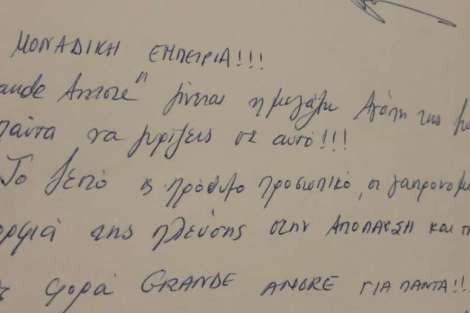 ΜΟΝΑΔΙΚΗ ΕΜΠΕΙΡΙΑ!!!
ande Amore" γίνεται η μεγάλη Αγάπη της
πάντα να γυρίζεις σε αυτό!!!
Το ζεστό & πρόθυμο προσωπικό, οι
της πλεύσης στην ΑΠΟΛΑΥΣΗ και
φορά GRANDE AMORE ΓΙΑ ΠΑΝΤΑ!!